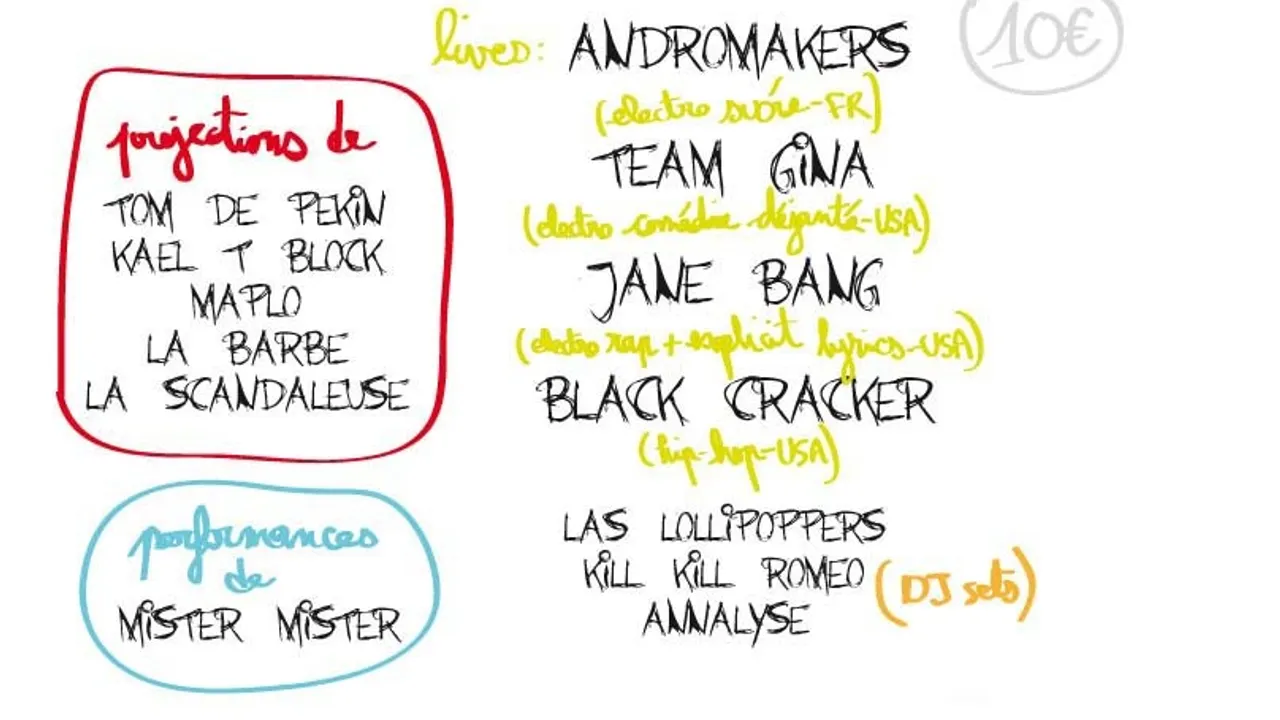 lives: ANDROMAKERS
(electro sucrée-FR)
TEAM GiNA
(electro comédie déjanté-USA)
JANE BANG
(electro rap + explicit lyrics-USA)
BLACK CRACKER
(hip-hop-USA)
LAS LOLLiPOPPERS
KiLL KiLL ROMEO (DJ sets)
ANNALYSE
10€
projections de
TOM DE PEKiN
KAEL T BLOCK
MAPLO
LA BARBE
LA SCANDALEUSE
performances
de
MiSTER MiSTER